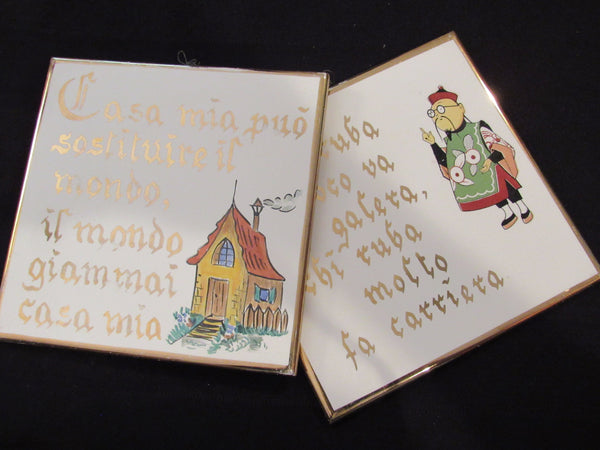 Casa mia può
sostituire il
mondo,
il mondo
giammai
casa mia
ruba
va
galera,
chi ruba
molto
fa carriera